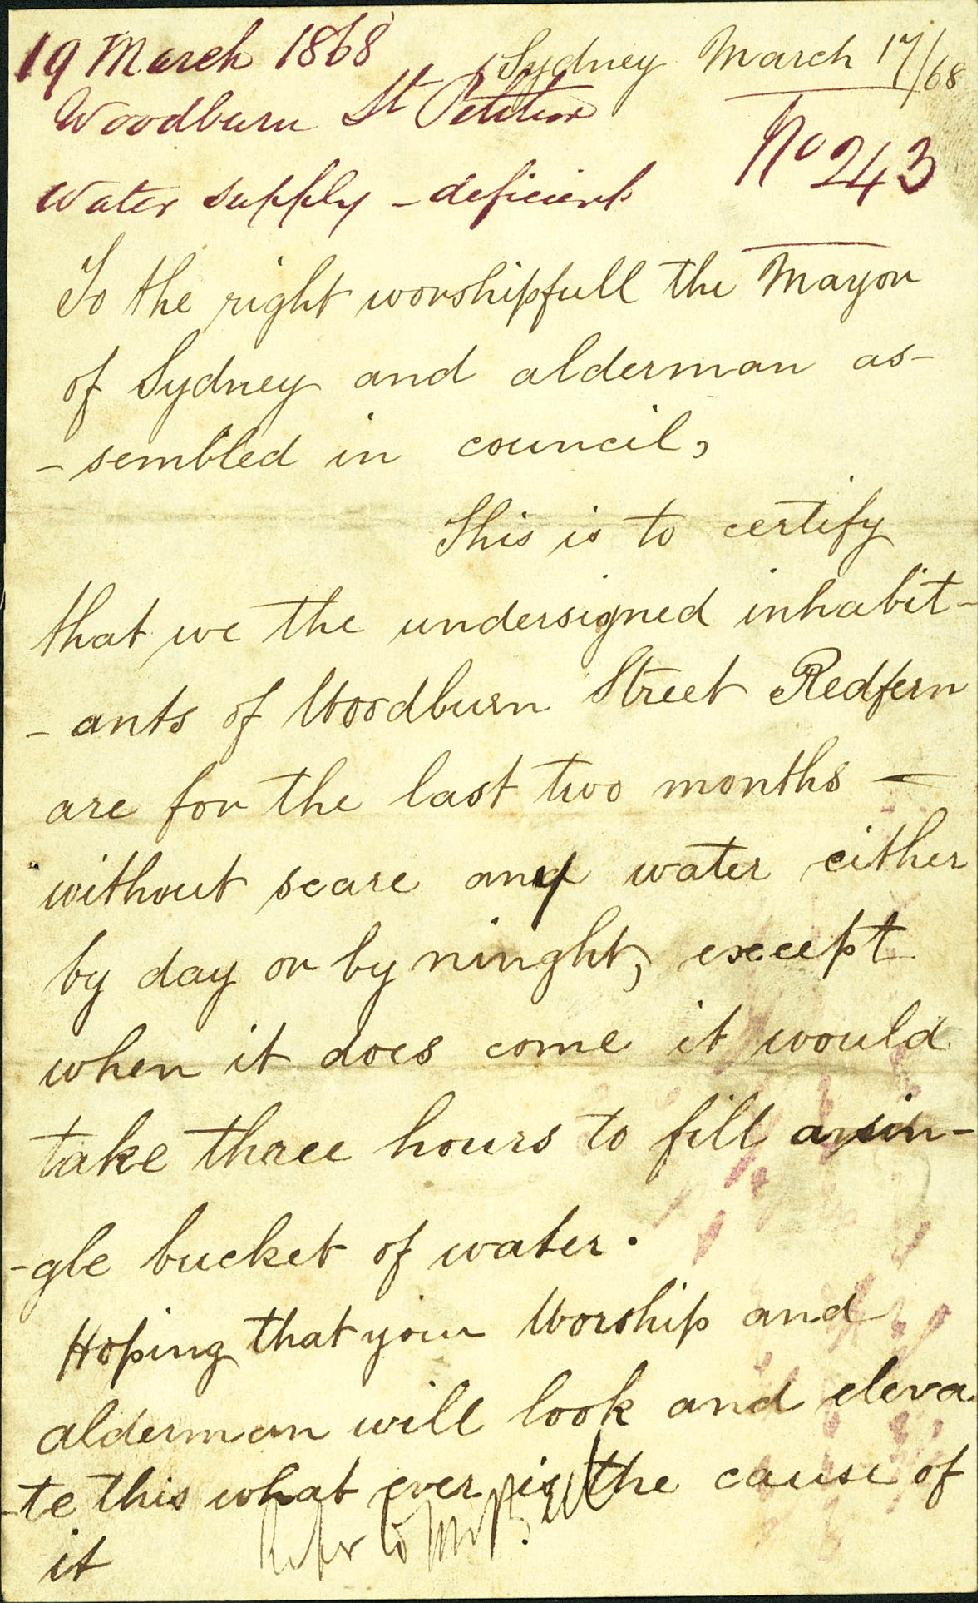 19 March 1868
Sydney March 17/68
Woodburn St Petition
No 243
Water supply - deficient
To the right worshipfull the Mayor
of Sydney and alderman as-
- sembled in council,
This is to certify
that we the undersigned inhabit-
- ants of Woodburn Street Redfern
are for the last two months -
without scare any water either
by day or by ninght, except
when it does come it would
take three hours to fill a sin-
-gle bucket of water.
Hoping that your Worship and
alderman will look and eleva
-te this what ever is the cause of
it
Refer to Mr Bell